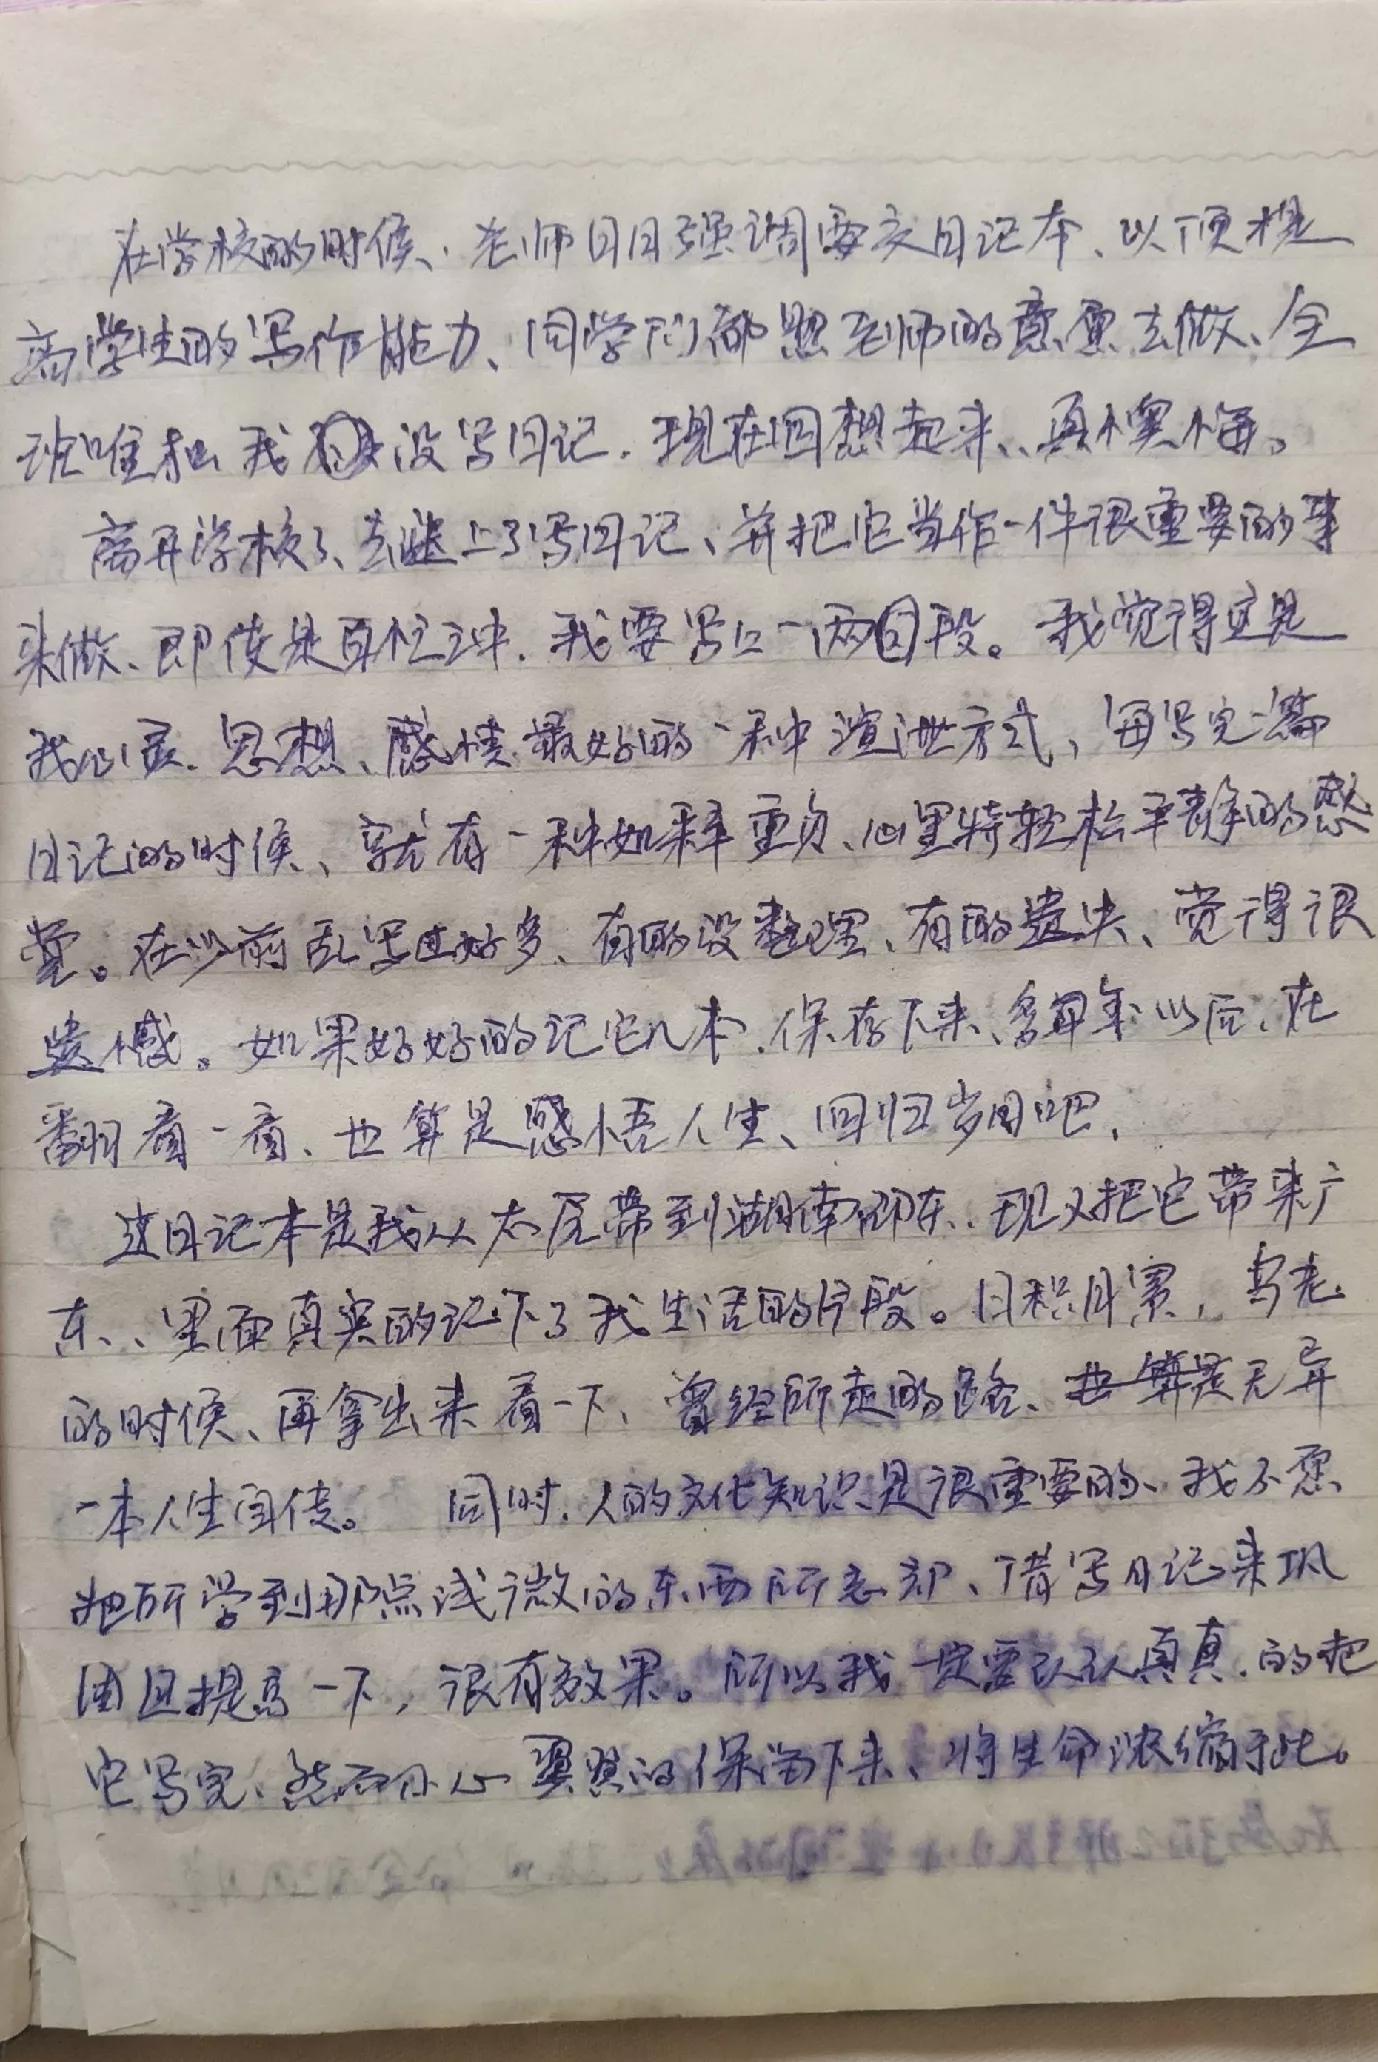 在学校的时候、老师日日强调要交日记本、以便提
高学生的写作能力、同学们都照老师的意思去做、全
班唯独我没写日记．现在回想起来、真懊悔。
离开学校了、却迷上了写日记、并把它当作一件很重要的事
来做、即使是百忙之中．我要写上一两段。我觉得这是
我心灵．思想、感情最好的一种渲泄方式，每写完一篇
日记的时候、就有一种如释重负、心里特轻松平静的感
觉。在以前乱写过好多、有的没整理、有的遗失、觉得很
遗憾。如果好好的记它几本．保存下来、多年以后．在
翻看一看、也算是感悟人生、回归岁月吧．
这日记本是我从太原带到湖南邵东、现又把它带来广
东、里面真实的记下了我生活的片段。日积月累，当老
的时候、再拿出来看一下、曾经所走的路、也算是无异
一本人生自传。 同时．人的文化知识是很重要的、我不愿
把所学到那点浅微的东西所忘却、借写日记来巩
固且提高一下，很有效果。所以我一定要认认真真．的把
它写完、然而小心翼翼的保留下来、将生命浓缩于此。